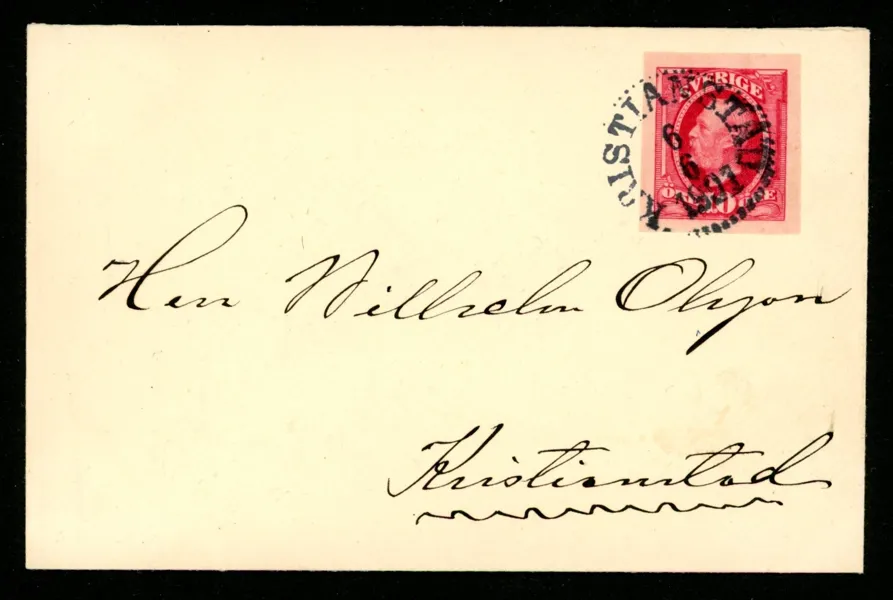 SVERIGE
KRISTIANSTAD
6
9
Herr Wilhelm Olson
Kristianstad